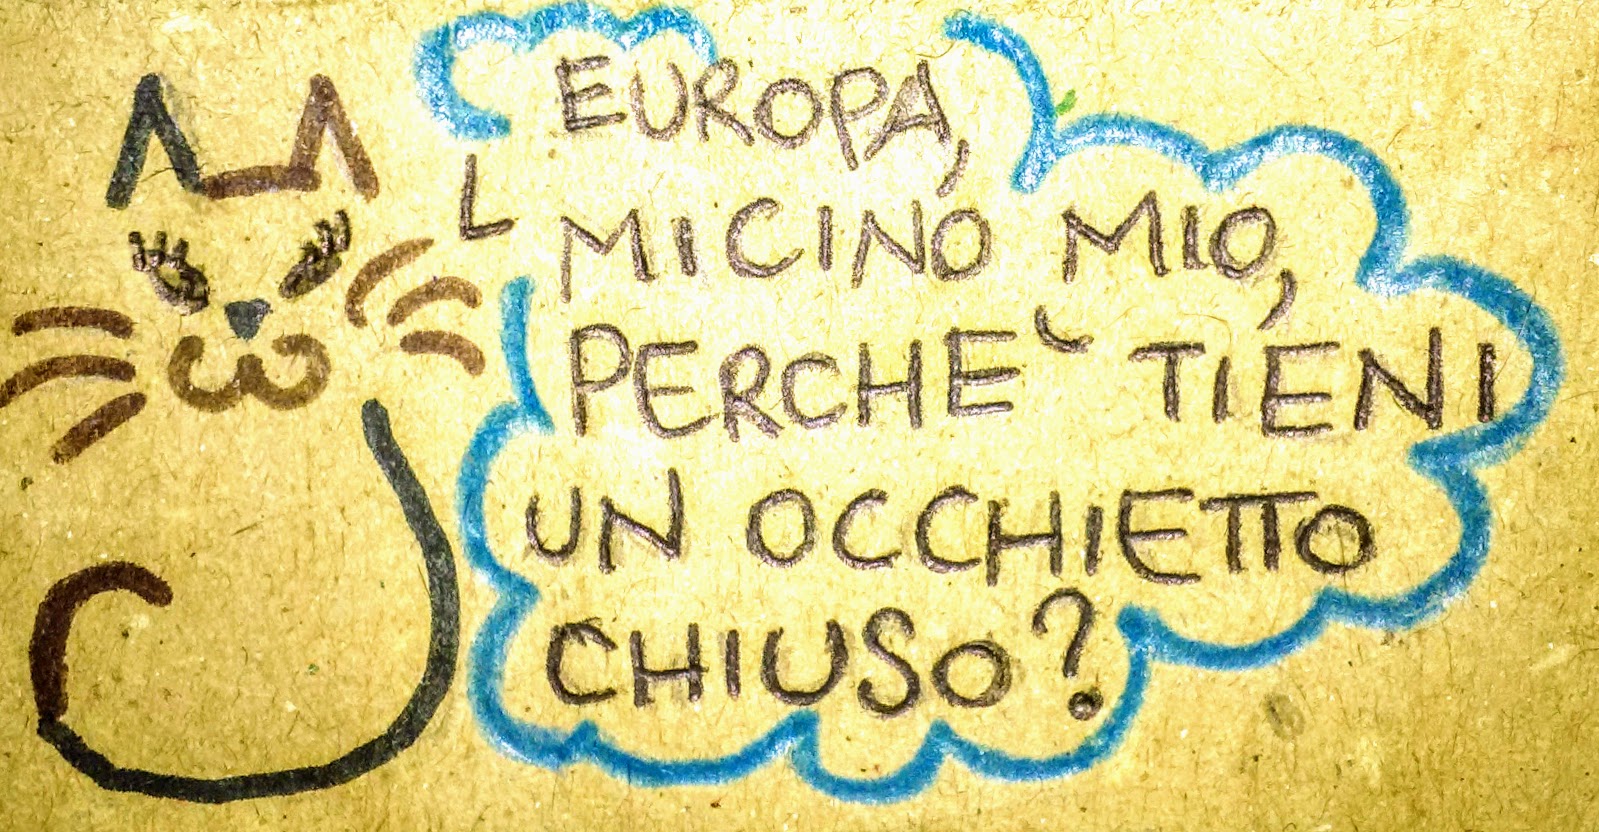 EUROPA,
MICINO MIO,
PERCHE` TIENI
UN OCCHIETTO
CHIUSO?